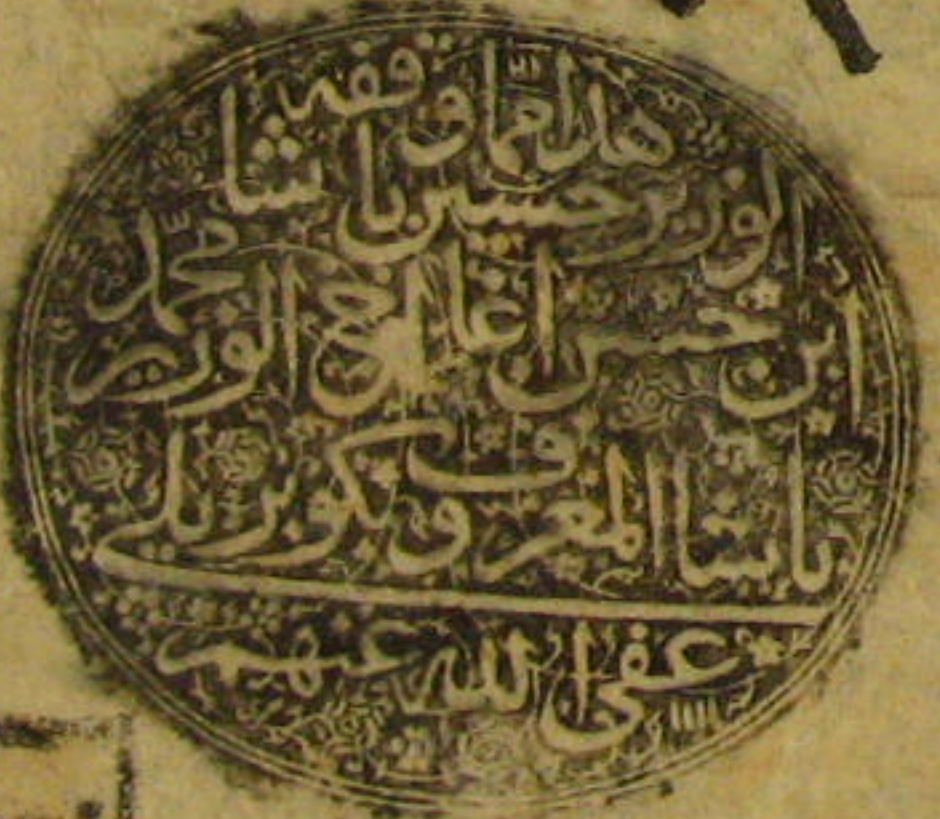 هذا مما وقفه
الوزير حسين باشا
ابن حسن اغا اخى الوزير محمد
باشا المعروف بكوبريلى
عفى الله عنهم
١١١١